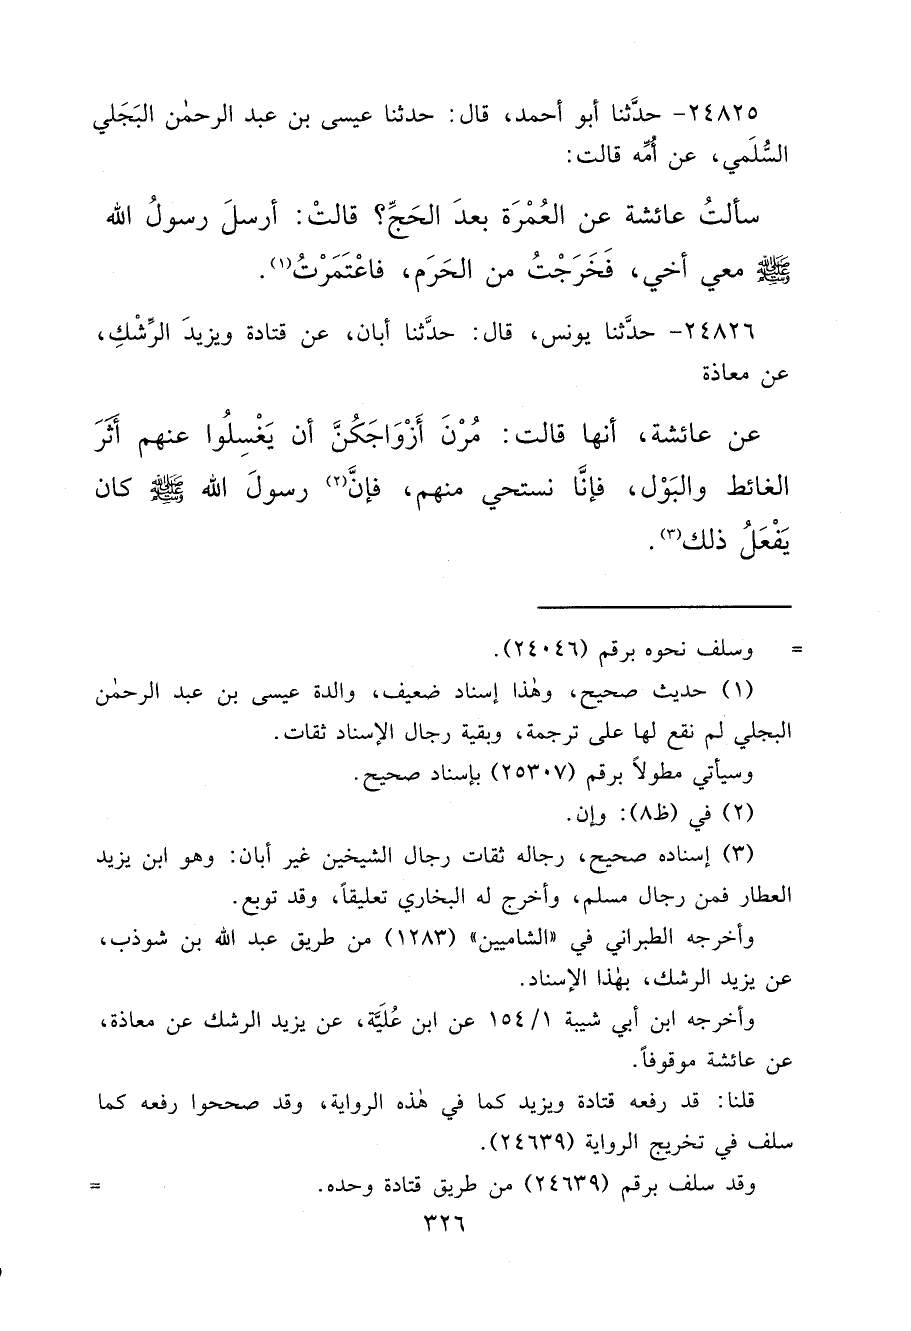 ٢٤٨٢٥- حدَّثنا أبو أحمد، قال: حدثنا عيسى بن عبد الرحمٰن البَجَلي
السُّلَمي، عن أُمِّه قالت:
سألتُ عائشة عن العُمْرَة بعدَ الحَجِّ؟ قالتْ: أرسلَ رسولُ الله
ﷺ معي أخي، فَخَرَجْتُ من الحَرَم، فاعْتَمَرْتُ(١).
٢٤٨٢٦- حدَّثنا يونس، قال: حدَّثنا أبان، عن قتادة ويزيدَ الرِّشْكِ،
عن معاذة
عن عائشة، أنها قالت: مُرْنَ أَزْوَاجَكُنَّ أن يَغْسِلُوا عنهم أَثَرَ
الغائط والبَوْل، فإنَّا نستحي منهم، فإنَّ(٢) رسولَ الله ﷺ كان
يَفْعَلُ ذلك(٣).
= وسلف نحوه برقم (٢٤٠٤٦).
(١) حديث صحيح، وهٰذا إسناد ضعيف، والدة عيسى بن عبد الرحمٰن
البجلي لم نقع لها على ترجمة، وبقية رجال الإسناد ثقات.
وسيأتي مطولاً برقم (٢٥٣٠٧) بإسناد صحيح.
(٢) في (ظ٨): وإن.
(٣) إسناده صحيح، رجاله ثقات رجال الشيخين غير أبان: وهو ابن يزيد
العطار فمن رجال مسلم، وأخرج له البخاري تعليقاً، وقد توبع.
وأخرجه الطبراني في «الشاميين» (١٢٨٣) من طريق عبد الله بن شوذب،
عن يزيد الرشك، بهٰذا الإسناد.
وأخرجه ابن أبي شيبة ١/ ١٥٤ عن ابن عُلَيَّة، عن يزيد الرشك عن معاذة،
عن عائشة موقوفاً.
قلنا: قد رفعه قتادة ويزيد كما في هٰذه الرواية، وقد صححوا رفعه كما
سلف في تخريج الرواية (٢٤٦٣٩).
وقد سلف برقم (٢٤٦٣٩) من طريق قتادة وحده. =
٣٢٦